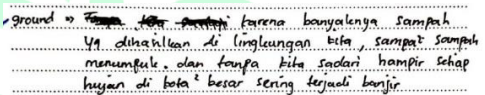 ground » karena banyaknya sampah
yg dihasilkan di lingkungan kita, sampai sampah
menumpuk. dan tanpa kita sadari hampir setiap
hujan di kota² besar sering terjadi banjir